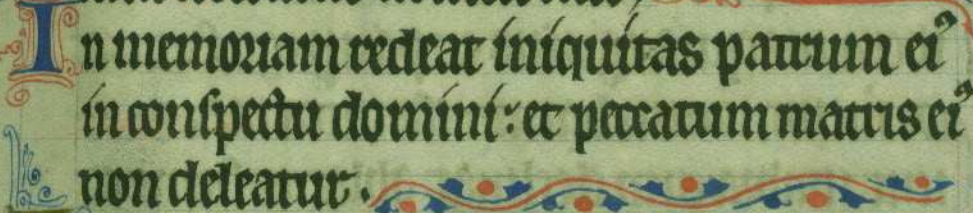 In memoriam redeat iniquitas patrum eiꝰ
in conſpectu domini: et peccatum matris eiꝰ
non deleatur.